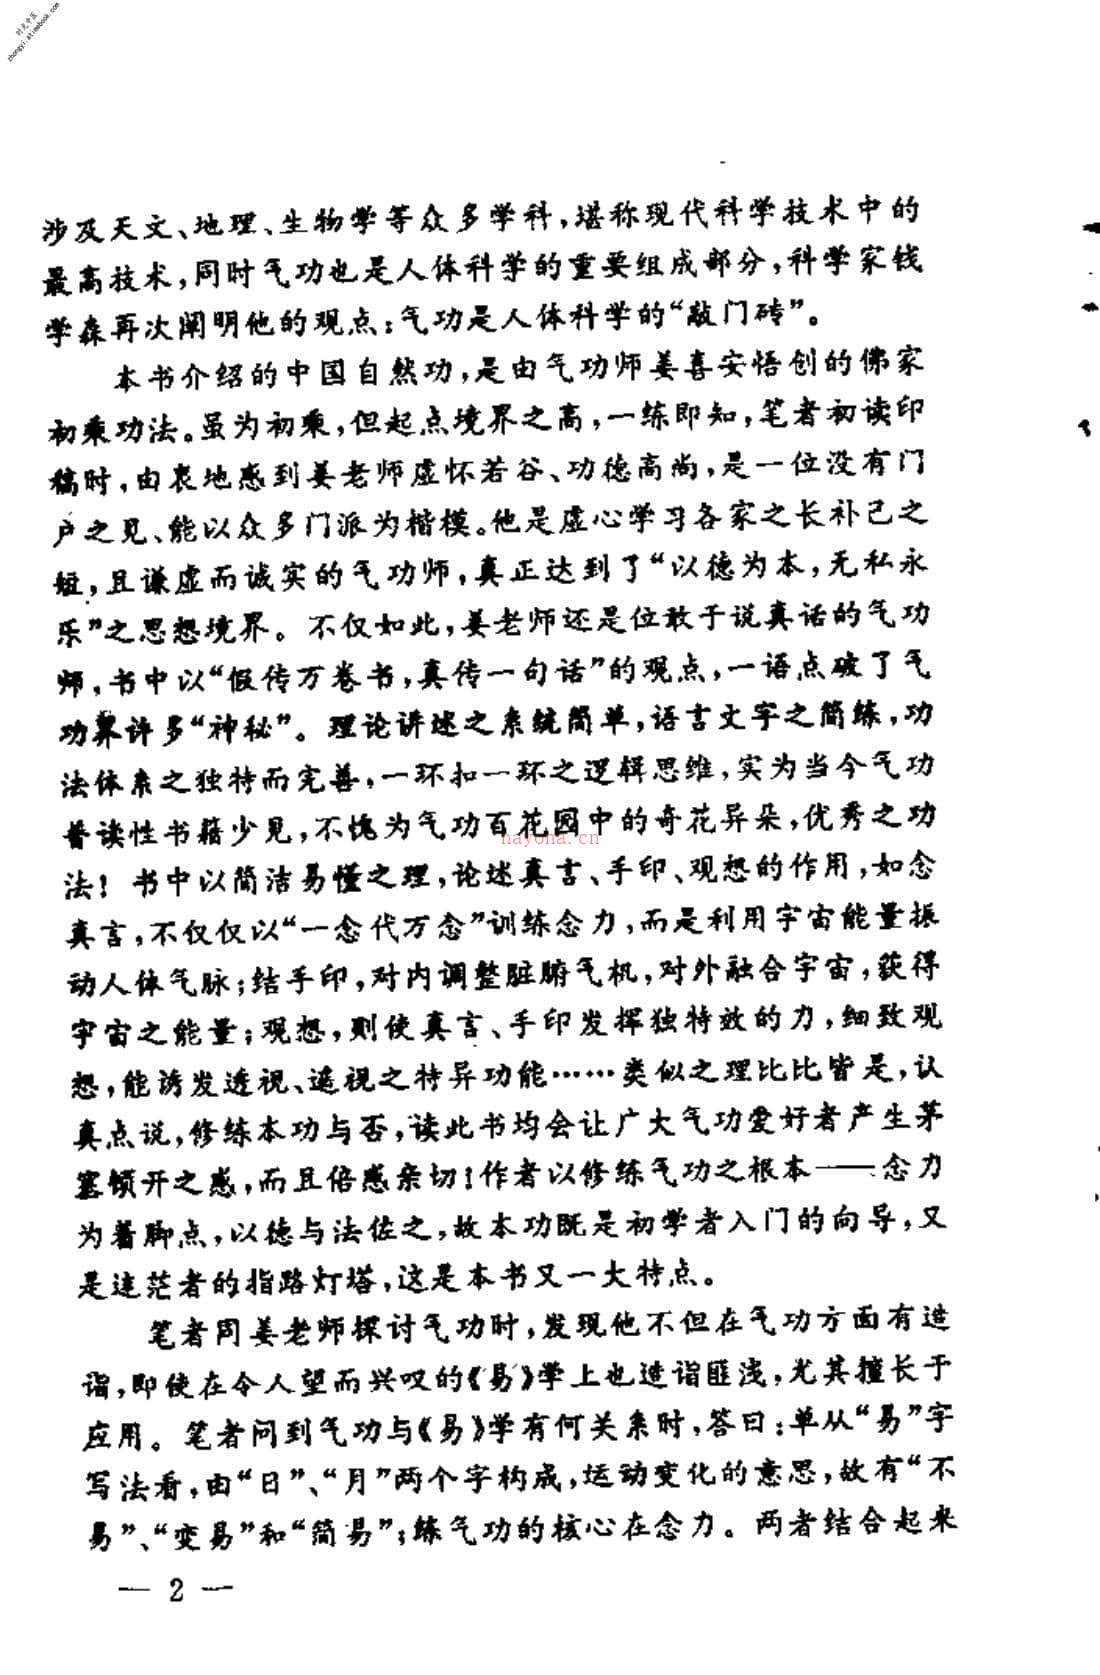 时光中医
zhongyi.atimebook.com
涉及天文、地理、生物学等众多学科，堪称现代科学技术中的
最高技术，同时气功也是人体科学的重要组成部分，科学家钱
学森再次阐明他的观点：气功是人体科学的“敲门砖”。
本书介绍的中国自然功，是由气功师姜喜安悟创的佛家
初乘功法。虽为初乘，但起点境界之高，一练即知，笔者初读印
稿时，由衷地感到姜老师虚怀若谷、功德高尚，是一位没有门
户之见、能以众多门派为楷模。他是虚心学习各家之长补己之
短，且谦虚而诚实的气功师，真正达到了“以德为本，无私永
乐”之思想境界。不仅如此，姜老师还是位敢于说真话的气功
师，书中以“假传万卷书，真传一句话”的观点，一语点破了气
功界许多“神秘”。理论讲述之系统简单，语言文字之简练，功
法体系之独特而完善，一环扣一环之逻辑思维，实为当今气功
普读性书籍少见，不愧为气功百花园中的奇花异朵，优秀之功
nayona.cn
法！书中以简洁易懂之理，论述真言、手印、观想的作用，如念
真言，不仅仅以“一念代万念”训练念力，而是利用宇宙能量振
动人体气脉；结手印，对内调整脏腑气机，对外融合宇宙，获得
宇宙之能量；观想，则使真言、手印发挥独特效的力，细致观
想，能诱发透视、遥视之特异功能……类似之理比比皆是，认
真点说，修练本功与否，读此书均会让广大气功爱好者产生茅
塞顿开之感，而且倍感亲切！作者以修练气功之根本——念力
为着脚点，以德与法佐之，故本功既是初学者入门的向导，又
是迷茫者的指路灯塔，这是本书又一大特点。
笔者同姜老师探讨气功时，发现他不但在气功方面有造
诣，即使在令人望而兴叹的《易》学上也造诣匪浅，尤其擅长于
应用。笔者问到气功与《易》学有何关系时，答曰：单从“易”字
写法看，由“日”、“月”两个字构成，运动变化的意思，故有“不
易”、“变易”和“简易”；练气功的核心在念力。两者结合起来
— 2 —